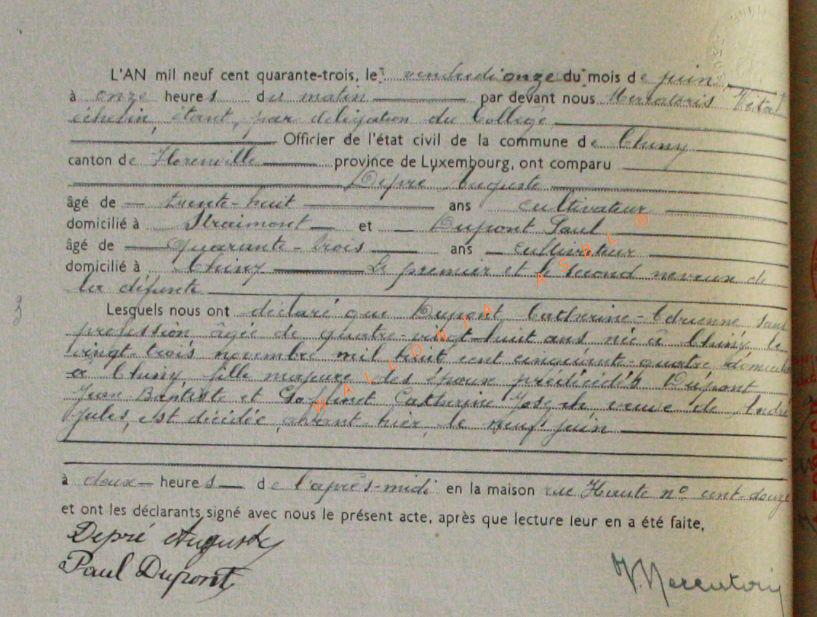 L'AN mil neuf cent quarante-trois, le vendredi onze du mois de juin
à onze heures du matin par devant nous
échevin, étant, par délégation du Collège
Officier de l'état civil de la commune de Chiny
canton de Florenville province de Luxembourg, ont comparu
Depré Auguste
âgé de trente-huit ans cultivateur
domicilié à Straimont et Dupont Paul
âgé de quarante-trois ans cultivateur
domicilié à Chiny Le premier et le second neveux de
la défunte
Lesquels nous ont déclaré que Dupont Catherine-Adrienne sans
profession âgée de quatre-vingt-huit ans née à Chiny le
vingt-trois novembre mil huit cent cinquante-quatre
à Chiny fille majeure des époux prédécédés Dupont
Jean Baptiste et Goffinet Catherine Joseph veuve de André
Jules, est décédée avant-hier, le neuf juin
à deux heures de l'après-midi en la maison rue Haute n° cent-douze
et ont les déclarants signé avec nous le présent acte, après que lecture leur en a été faite,
Depré Auguste
Paul Dupont